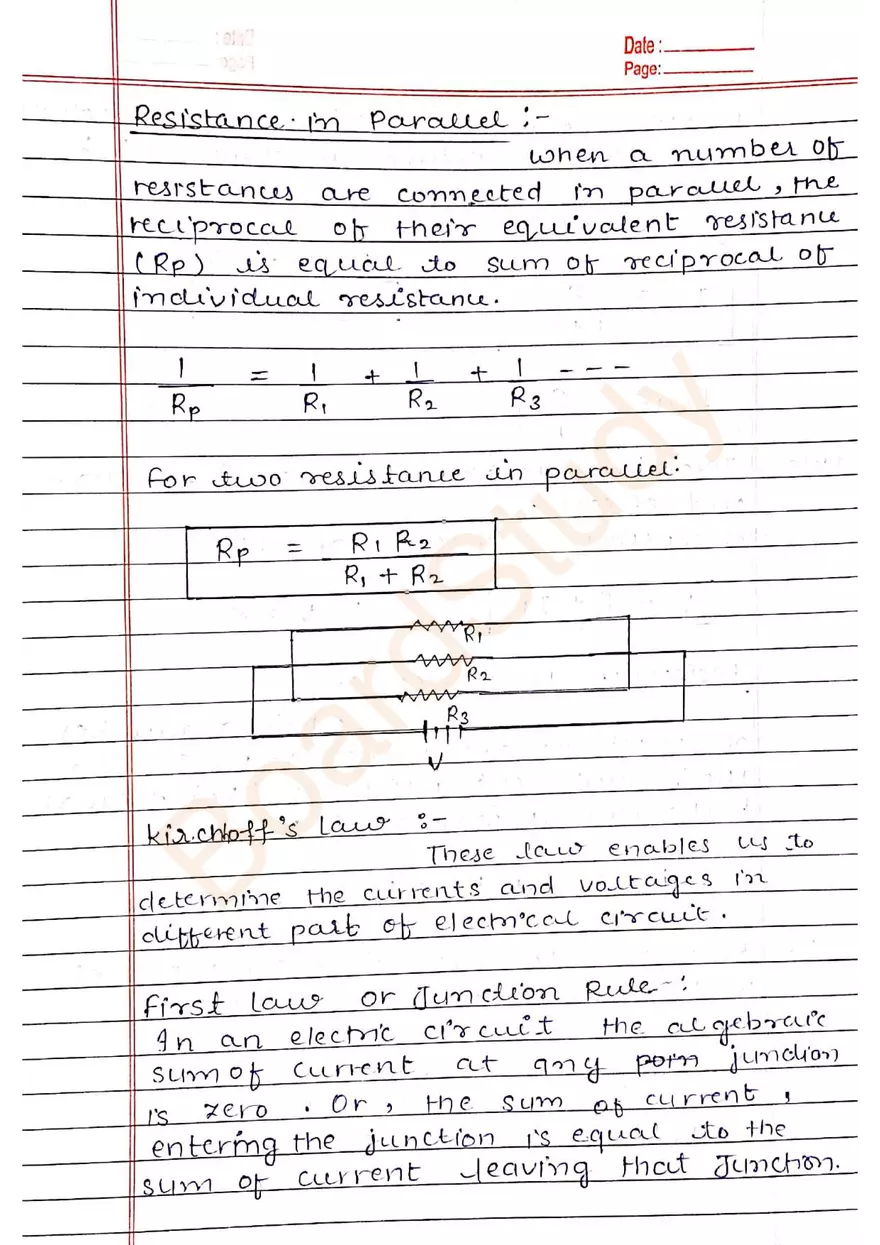 Date :
Page:
Resistance in Parallel :-
When a number of
resistances are connected in parallel, the
reciprocal of their equivalent resistance
(Rp) is equal to sum of reciprocal of
individual resistance.
1/Rp = 1/R1 + 1/R2 + 1/R3 ---
For two resistance in parallel:
Rp = R1 R2 / R1 + R2
R1
R2
R3
V
Kirchhoff's law :-
These law enables us to
determine the currents and voltages in
different part of electrical circuit.
First law or Junction Rule-:
In an electric circuit the algebraic
sum of current at any junction
is zero. Or, the sum of current,
entering the junction is equal to the
sum of current leaving that Junction.
BoardStudy